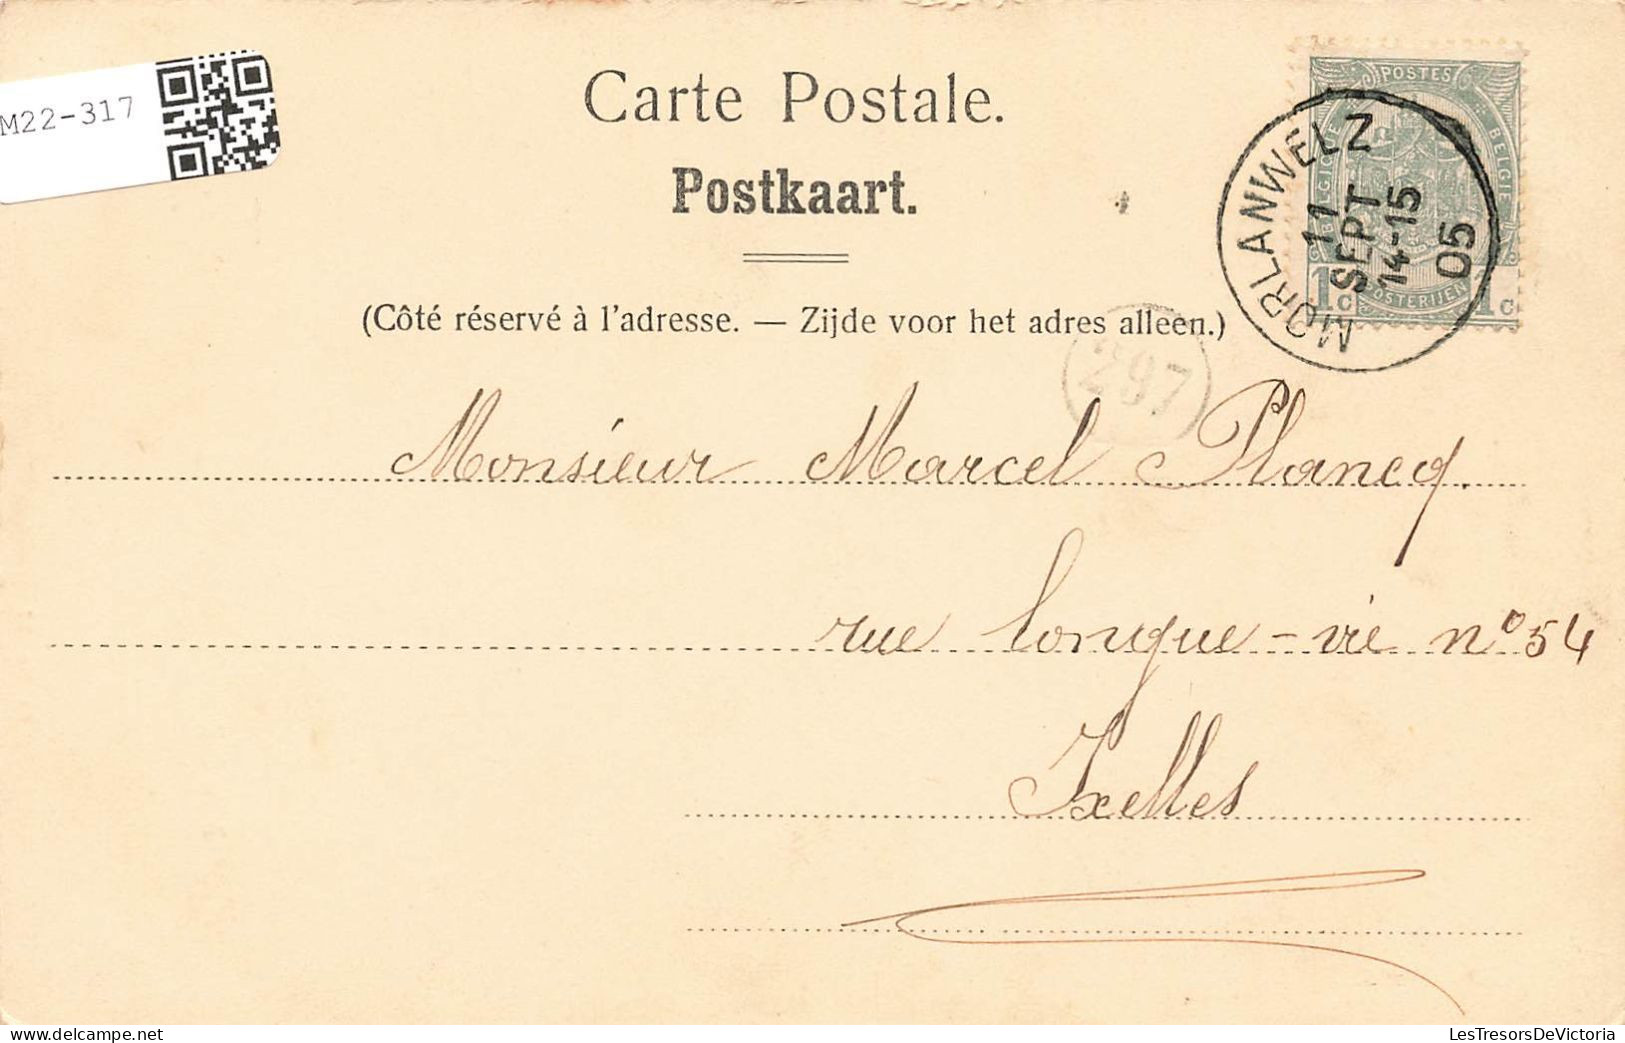 M22-317
Carte Postale.
Postkaart.
(Côté réservé à l'adresse. — Zijde voor het adres alleen.)
POSTES
BELGIQUE
BELGIE
POSTERIJEN
1c 1c
MORLANWELZ
11
SEPT
14-15
05
297
Monsieur Marcel Plancq.
rue longue-vie n° 54
Ixelles
LesTresorsDeVictoria